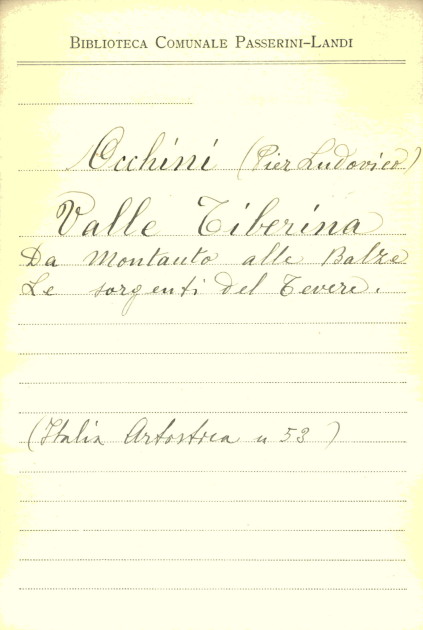 BIBLIOTECA COMUNALE PASSERINI-LANDI
Occhini (Pier Ludovico)
Valle Tiberina
Da Montauto alle Balze
Le sorgenti del Tevere.
(Italia Artostica n 53)